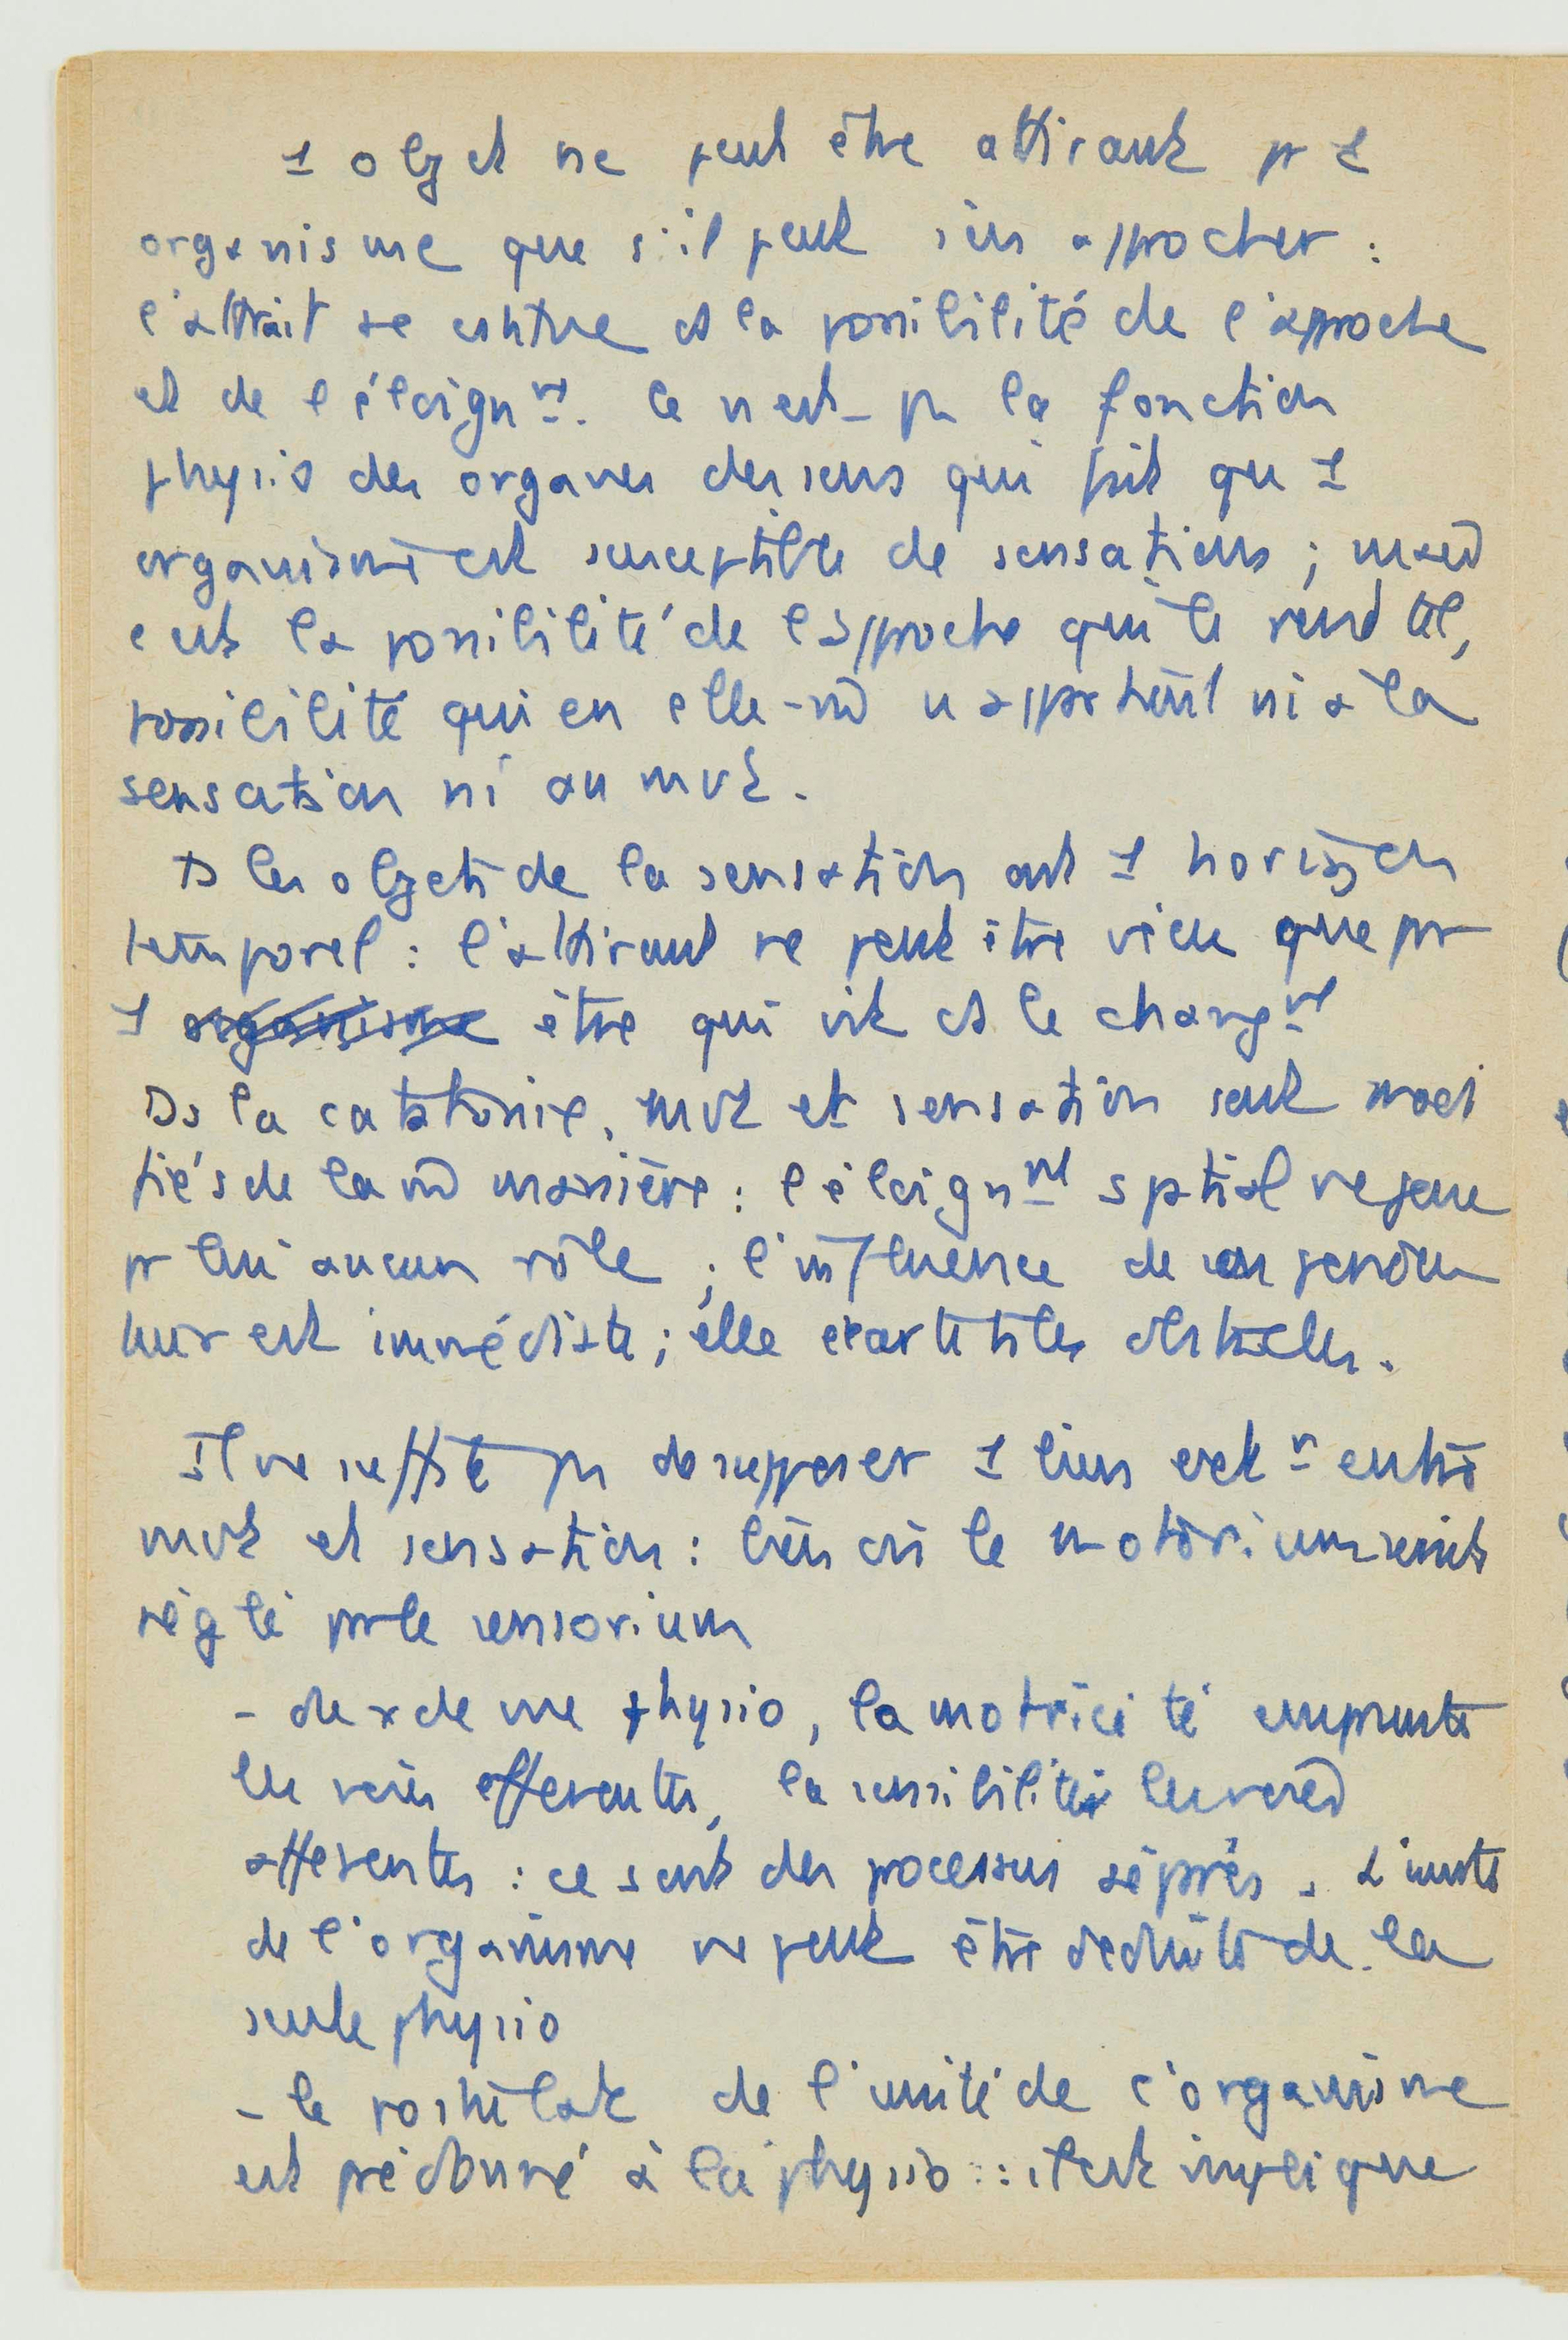 1 objet ne peut être attirant pr 1
organisme que s'il peut s'en approcher :
l'attrait se montre ds la possibilité de l'approche
et de l'éloignmt. Ce n'est pas la fonction
physio des organes des sens qui fait qu'1
organisme est susceptible de sensations ; mais
c'est la possibilité de l'approche qui le rend tel,
possibilité qui en elle-m̂ n'apprtient ni à la
sensation ni au mvt.
Ds les objets de la sensation ont 1 horizon
temporel : l'attirant ne peut être vécu que pr
1 organisme être qui vit ds le changmt
Ds la catatonie, mvt et sensation sont modi
fiés de la m̂ manière : l'éloignmt sptial ne joue
pr lui aucun rôle ; l'influence de son persécu
teur est immédiate ; elle écarte ts les obstacles.
Il ne suffit pas de supposer 1 lien ext n entre
mvt et sensation : lien où le motorium serait
réglé pr le sensorium
- du x de vue physio, la motricité emprunte
les voies efférentes, la sensibilité les voies
afférentes : ce sont des processus séprés. L'unité
de l'organisme ne peut être déduite de la
seule physio
- le postulat de l'unité de l'organisme
est prédonné à la physio : il est impliqué